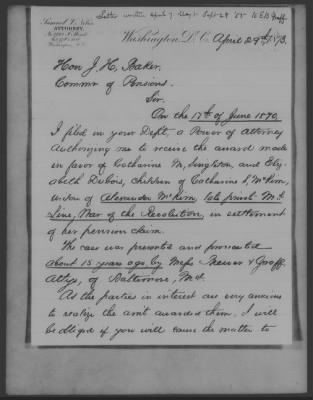 Letter written April 7. May 1. Sept 29
Samuel V. Niles,
ATTORNEY,
Washington, D.C.
Washington, D.C. April 29th 1873.
Hon J. H. Baker.
Commr of Pensions.
Sir.
On the 17th of June 1870,
I filed in your Dept, a Power of Attorney
Authorizing me to receive the award made
in favor of Catharine M, Singleton, and Eliz-
abeth DuBois, children of Catharine S, McKim,
widow of Alexander McKim, late privt Md.
Line, War of the Revolution, in settlement
of her pension claim.
The case was presented and prosecuted
about 15 years ago by Messrs & Graff,
Attys, of Baltimore, Md.
As the parties in interest are very anxious
to realize the amt awarded them, I will
be obliged if you will cause the matter to